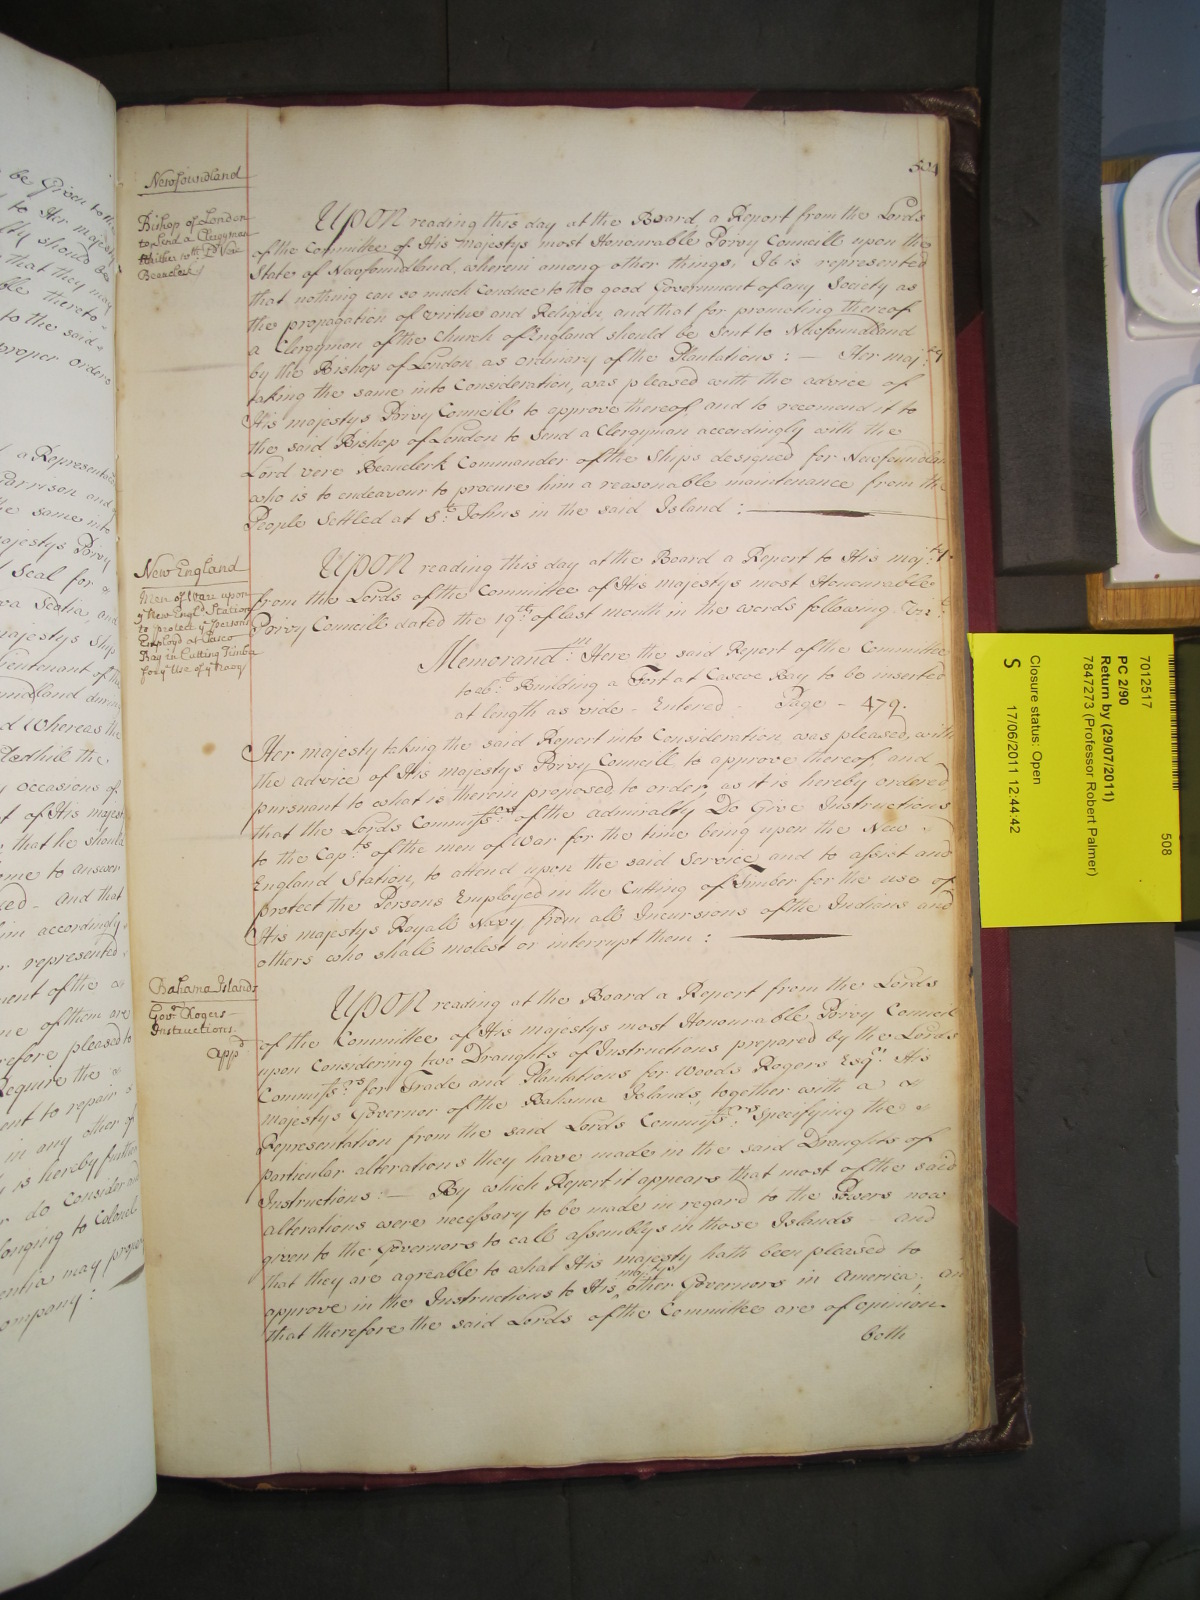 504
Newfoundland
Bishop of London
to Send a Clergyman
thither wth. Ld. Vere
Beauclerk
UPON reading this day at the Board a Report from the Lords
of the Committee of His Majestys most Honourable Privy Councill upon the
State of Newfoundland, wherein among other things, It is represented
that nothing can so much Conduce to the good Government of any Society as
the propagation of Virtue and Religion, and that for promoting thereof
a Clergyman of the Church of England should be Sent to Newfoundland
by the Bishop of London as ordinary of the Plantations: — Her Maj:ty
taking the same into Consideration, was pleased with the advice of
His Majestys Privy Councill to approve thereof and to recomend it to
the said Bishop of London to Send a Clergyman accordingly with the
Lord Vere Beauclerk Commander of the Ships designed for Newfoundland
who is to endeavour to procure him a reasonable maintenance from the
People Settled at St. Johns in the said Island:
New England
Men of War upon
ye New Engld. Station
to protect ye persons
Employd at Casco
Bay in Cutting Timber
for ye Use of ye Navy
UPON reading this day at the Board a Report to His Maj:ty
from the Lords of the Committee of His Majestys most Honourable
Privy Councill dated the 19th. of last month in the words following
Memorandm: Here the said Report of the Committee
Building a Fort at Cascoe Bay to be inserted
at length as vide - Entered - Page - 479.
Her Majesty taking the said Report into Consideration was pleased, with
the advice of His Majestys Privy Councill to approve thereof, and
pursuant to what is therein proposed, to order, as it is hereby ordered,
that the Lords Commissrs. of the Admiralty Do Give Instructions
to the Capts. of the men of War for the time being upon the New
England Station, to attend upon the said Service and to assist and
protect the Persons Employed in the Cutting of Timber for the use of
His Majestys Royall Navy from all Incursions of the Indians and
others who shall molest or interrupt them:
Bahama Islands
Govr. Rogers
Instructions
appd.
UPON reading at the Board a Report from the Lords
of the Committee of His Majestys most Honourable Privy Councill
upon Considering two Draughts of Instructions prepared by the Lords
Commissrs. for Trade and Plantations for Woods Rogers Esqr. His
Majestys Governor of the Bahama Islands, together with a
Representation from the said Lords Commissrs. Specifying the
particular alterations they have made in the said Draughts of
Instructions: — By which Report it appears that most of the said
alterations were necessary to be made in regard to the Powers now
given to the Governors to call assemblys in those Islands and
that they are agreable to what His Majesty hath been pleased to
approve in the Instructions to His Majestys other Governors in America, and
that therefore the said Lords of the Committee are of opinion
both
7012517
508
PC 2/90
Return by (29/07/2011)
7847273 (Professor Robert Palmer)
Closure status: Open
S
17/06/2011 12:44:42